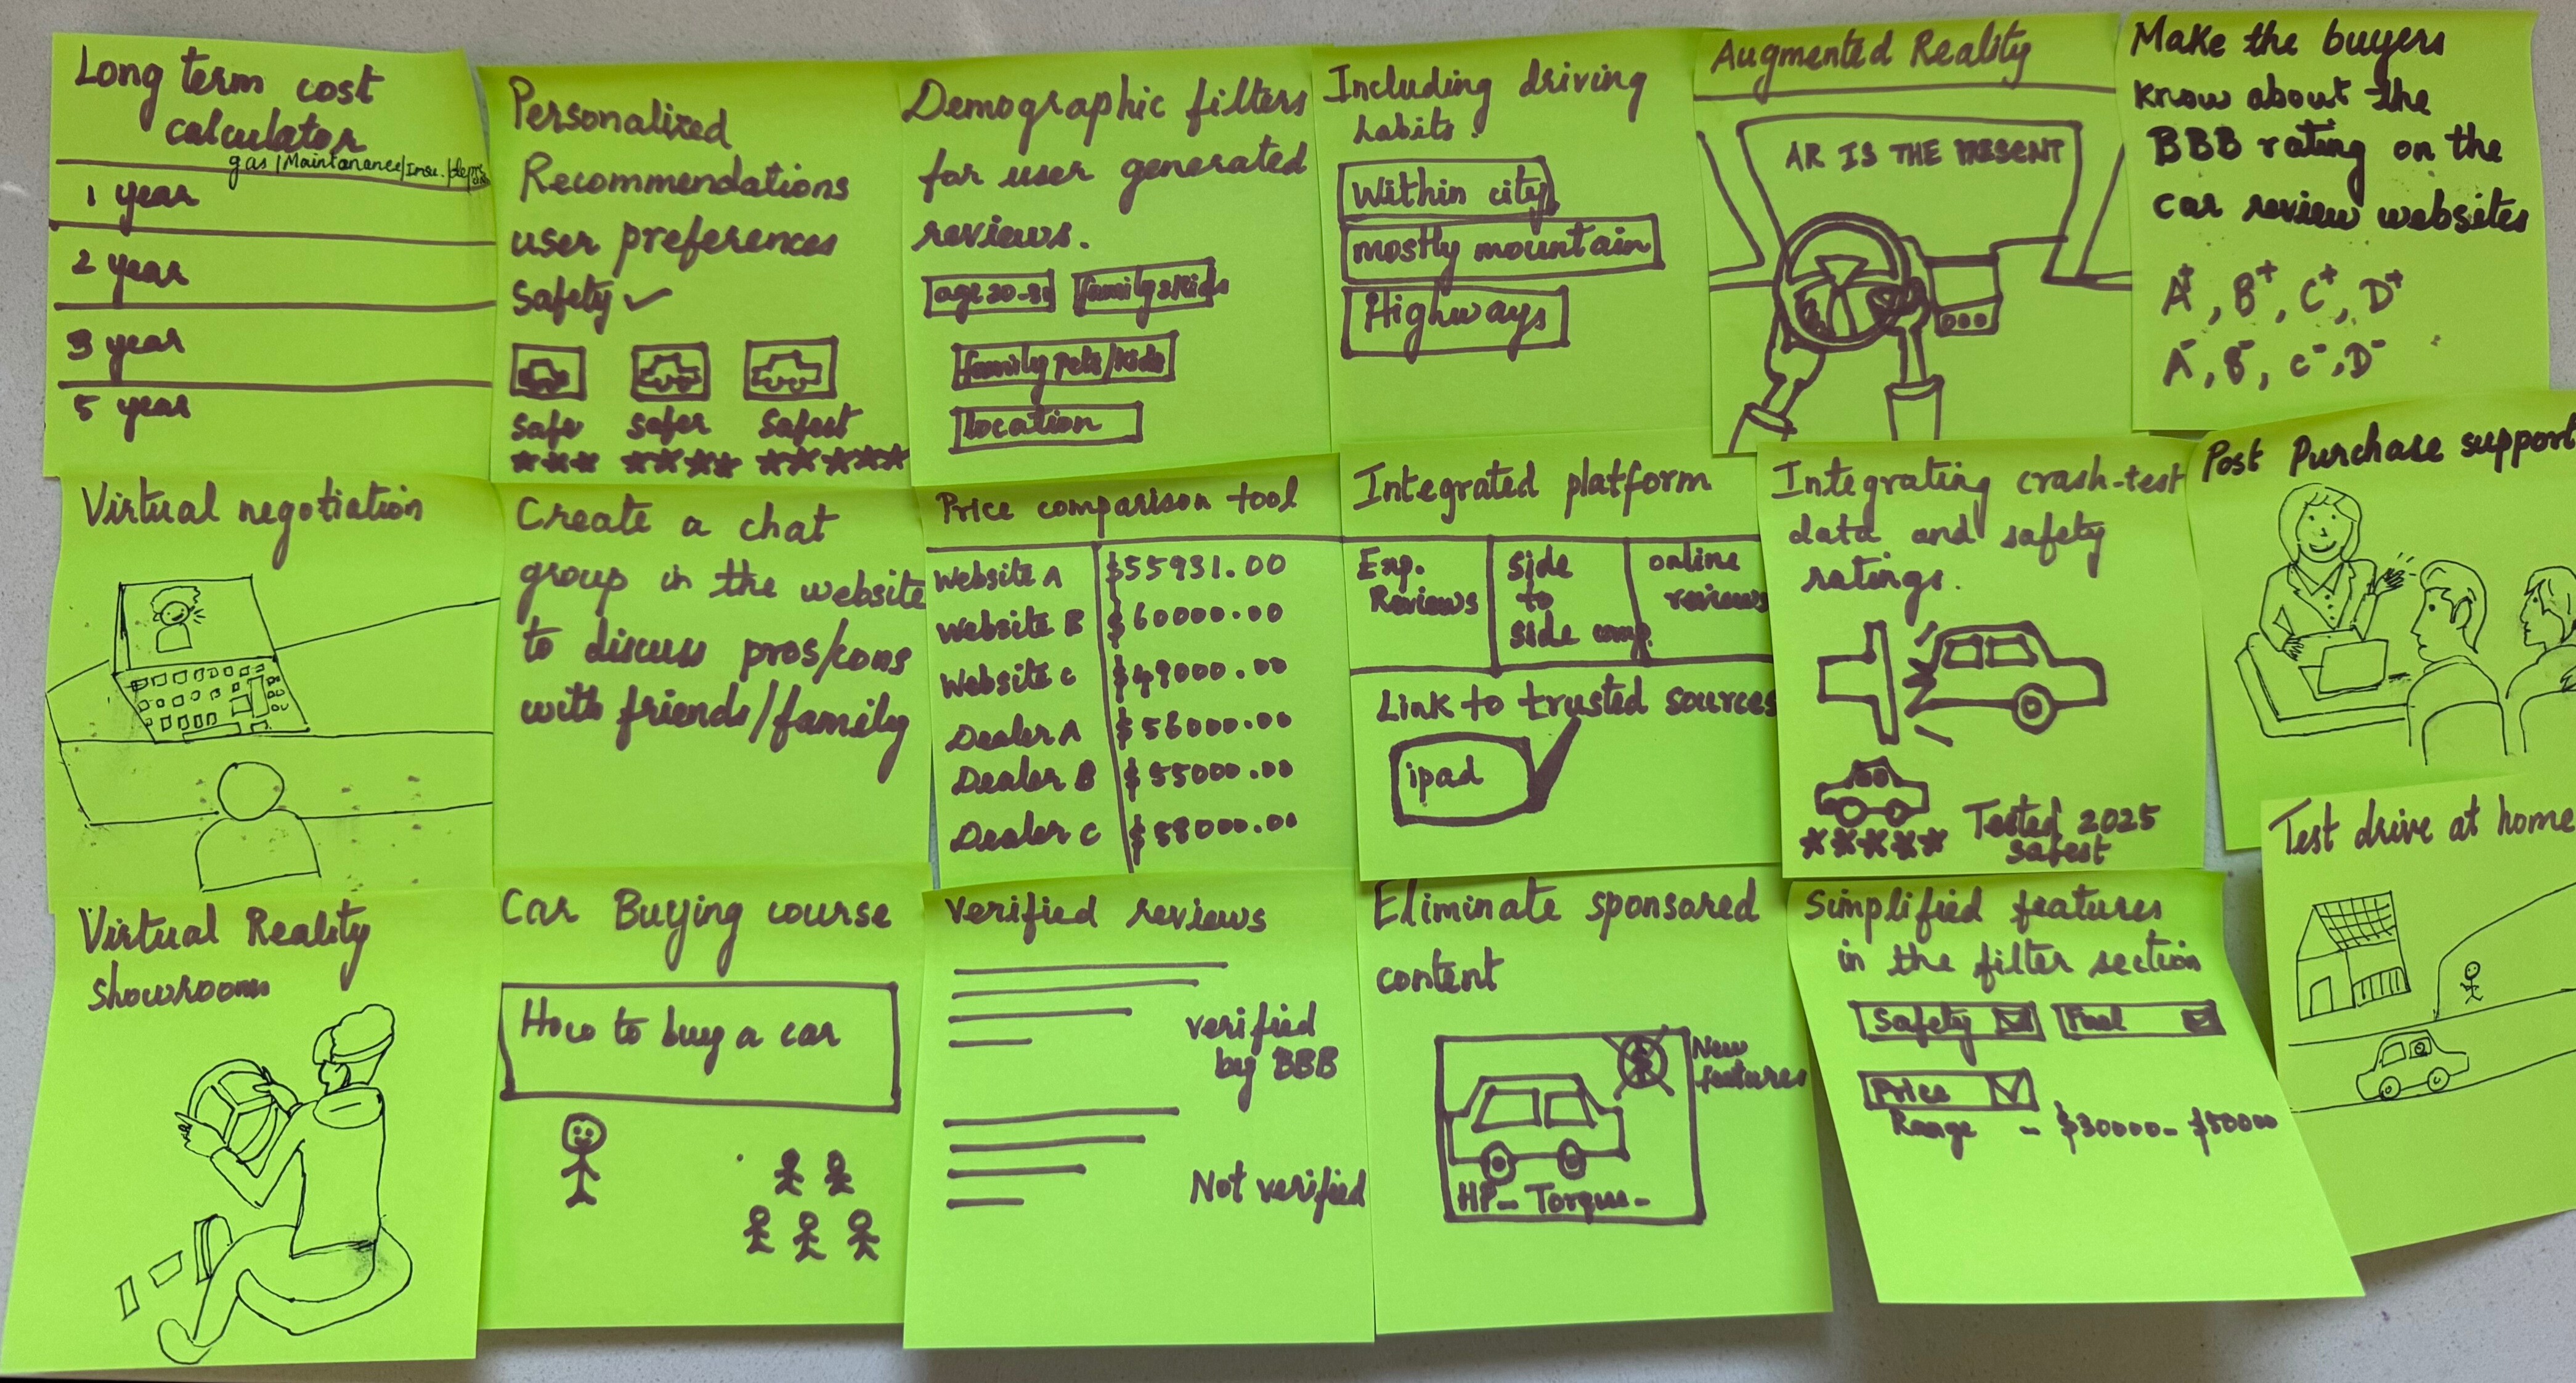 Long term cost
calculator
gas / Maintanance / Insu. /
1 year
2 year
3 year
5 year
Personalized
Recommendations
user preferences
Safety ✓
safe safer safest
Demographic filters
for user generated
reviews.
age 20-30 family & kids
family pets/kids
location
Including driving
habits.
Within city
mostly mountain
Highways
Augmented Reality
AR IS THE PRESENT
Make the buyers
know about the
BBB rating on the
car review websites
A+, B+, C+, D+
A-, B-, C-, D-
Virtual negotiation
Create a chat
group in the website
to discuss pros/cons
with friends/family
Price comparison tool
Website A $55931.00
Website B $60000.00
Website C $49000.00
Dealer A $56000.00
Dealer B $55000.00
Dealer C $58000.00
Integrated platform
Exp.
Reviews
side
to
side comp.
online
reviews
Link to trusted sources
ipad
Integrating crash-test
data and safety
ratings.
Tested 2025
safest
Post Purchase support
Test drive at home
Virtual Reality
showrooms
Car Buying course
How to buy a car
Verified reviews
verified
by BBB
Not verified
Eliminate sponsored
content
New
features
HP- Torque-
Simplified features
in the filter section
Safety Fuel
Price
Range - $30000- $50000